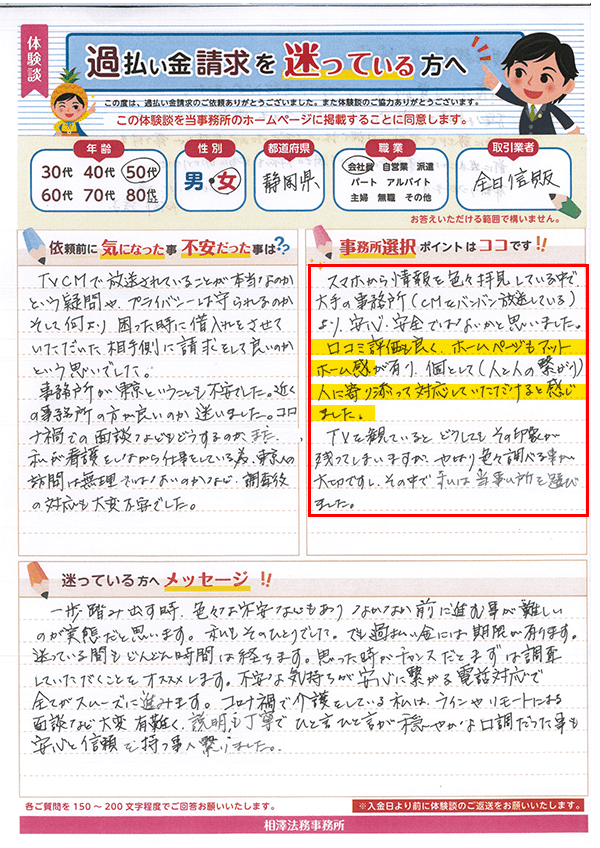 体験談
過払い金請求を迷っている方へ
この度は、過払い金請求のご依頼ありがとうございました。また体験談のご協力ありがとうございます。
この体験談を当事務所のホームページに掲載することに同意します。
年齢
30代 40代 50代
60代 70代 80代
性別
男・女
都道府県
静岡県
職業
会社員 自営業 派遣
パート アルバイト
主婦 無職 その他
取引業者
全日信販
お答えいただける範囲で構いません。
依頼前に気になった事 不安だった事は??
TVCMで放送されていることが本当なのか
という疑問や、プライバシーは守られるのか
そして何より困った時に借入れをさせて
いただいた相手側に請求をして良いのか
という思いでした。
事務所が東京ということも不安でした。近く
の事務所の方が良いのか迷いました。コロ
ナ禍での面談などもどうするのか、また、
私が看護をしながら仕事をしている為、東京への
訪問は無理ではないのかなど、調査後
の対応も大変不安でした。
事務所選択 ポイントはココです!!
スマホから情報を色々拝見している中で、
大手の事務所(CMをバンバン放送している)
より、安心・安全ではないかと思いました。
口コミ評価も良く、ホームページもアット
ホーム感が有り、個として(人と人の繋がり)
人に寄り添って対応していただけると感じ
ました。
TVを観ていると、どうしてもその印象が
残ってしまいますが、やはり色々調べる事が
大切ですし、その中で私は当事務所を選び
ました。
迷っている方へメッセージ!!
一歩踏み出す時、色々な不安な心もあり なかなか前に進む事が難しい
のが実態だと思います。私もそのひとりでした。でも過払い金には期限が有ります。
迷っている間もどんどん時間は経ちます。思った時がチャンスだとまずは調査
していただくことをオススメします。不安な気持ちが安心に繋がる電話対応で
全てがスムーズに進みます。コロナ禍で介護をしている私は、ラインやリモートによる
面談など大変有難く、説明も丁寧でひと言ひと言が穏やかな口調だった事も
安心と信頼を持つ事へ繋りました。
各ご質問を150～200文字程度でご回答お願いいたします。
※入金日より前に体験談のご返送をお願いいたします。
相澤法務事務所